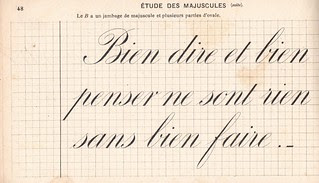 48
ÉTUDE DES MAJUSCULES (suite).
Le B a un jambage de majuscule et plusieurs parties d'ovale.
Bien dire et bien
penser ne sont rien
sans bien faire._